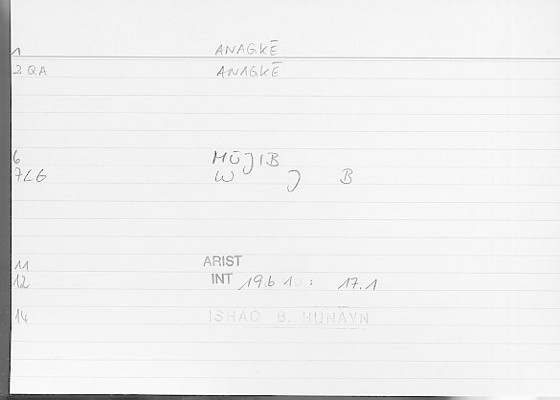 1 ANAGKĒ
2 QA ANAGKĒ
6 MŪJIB
7LG W J B
11 ARIST
12 INT 19.b 10 : 17.1
14 ISHAQ B. HUNAYN